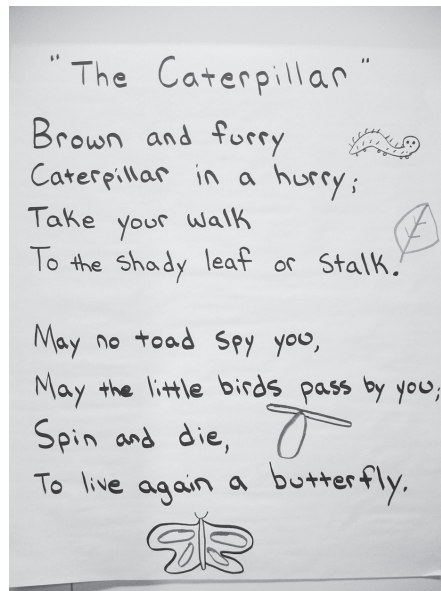 "The Caterpillar"
Brown and furry
Caterpillar in a hurry;
Take your walk
To the shady leaf or stalk.
May no toad spy you,
May the little birds pass by you;
Spin and die,
To live again a butterfly.